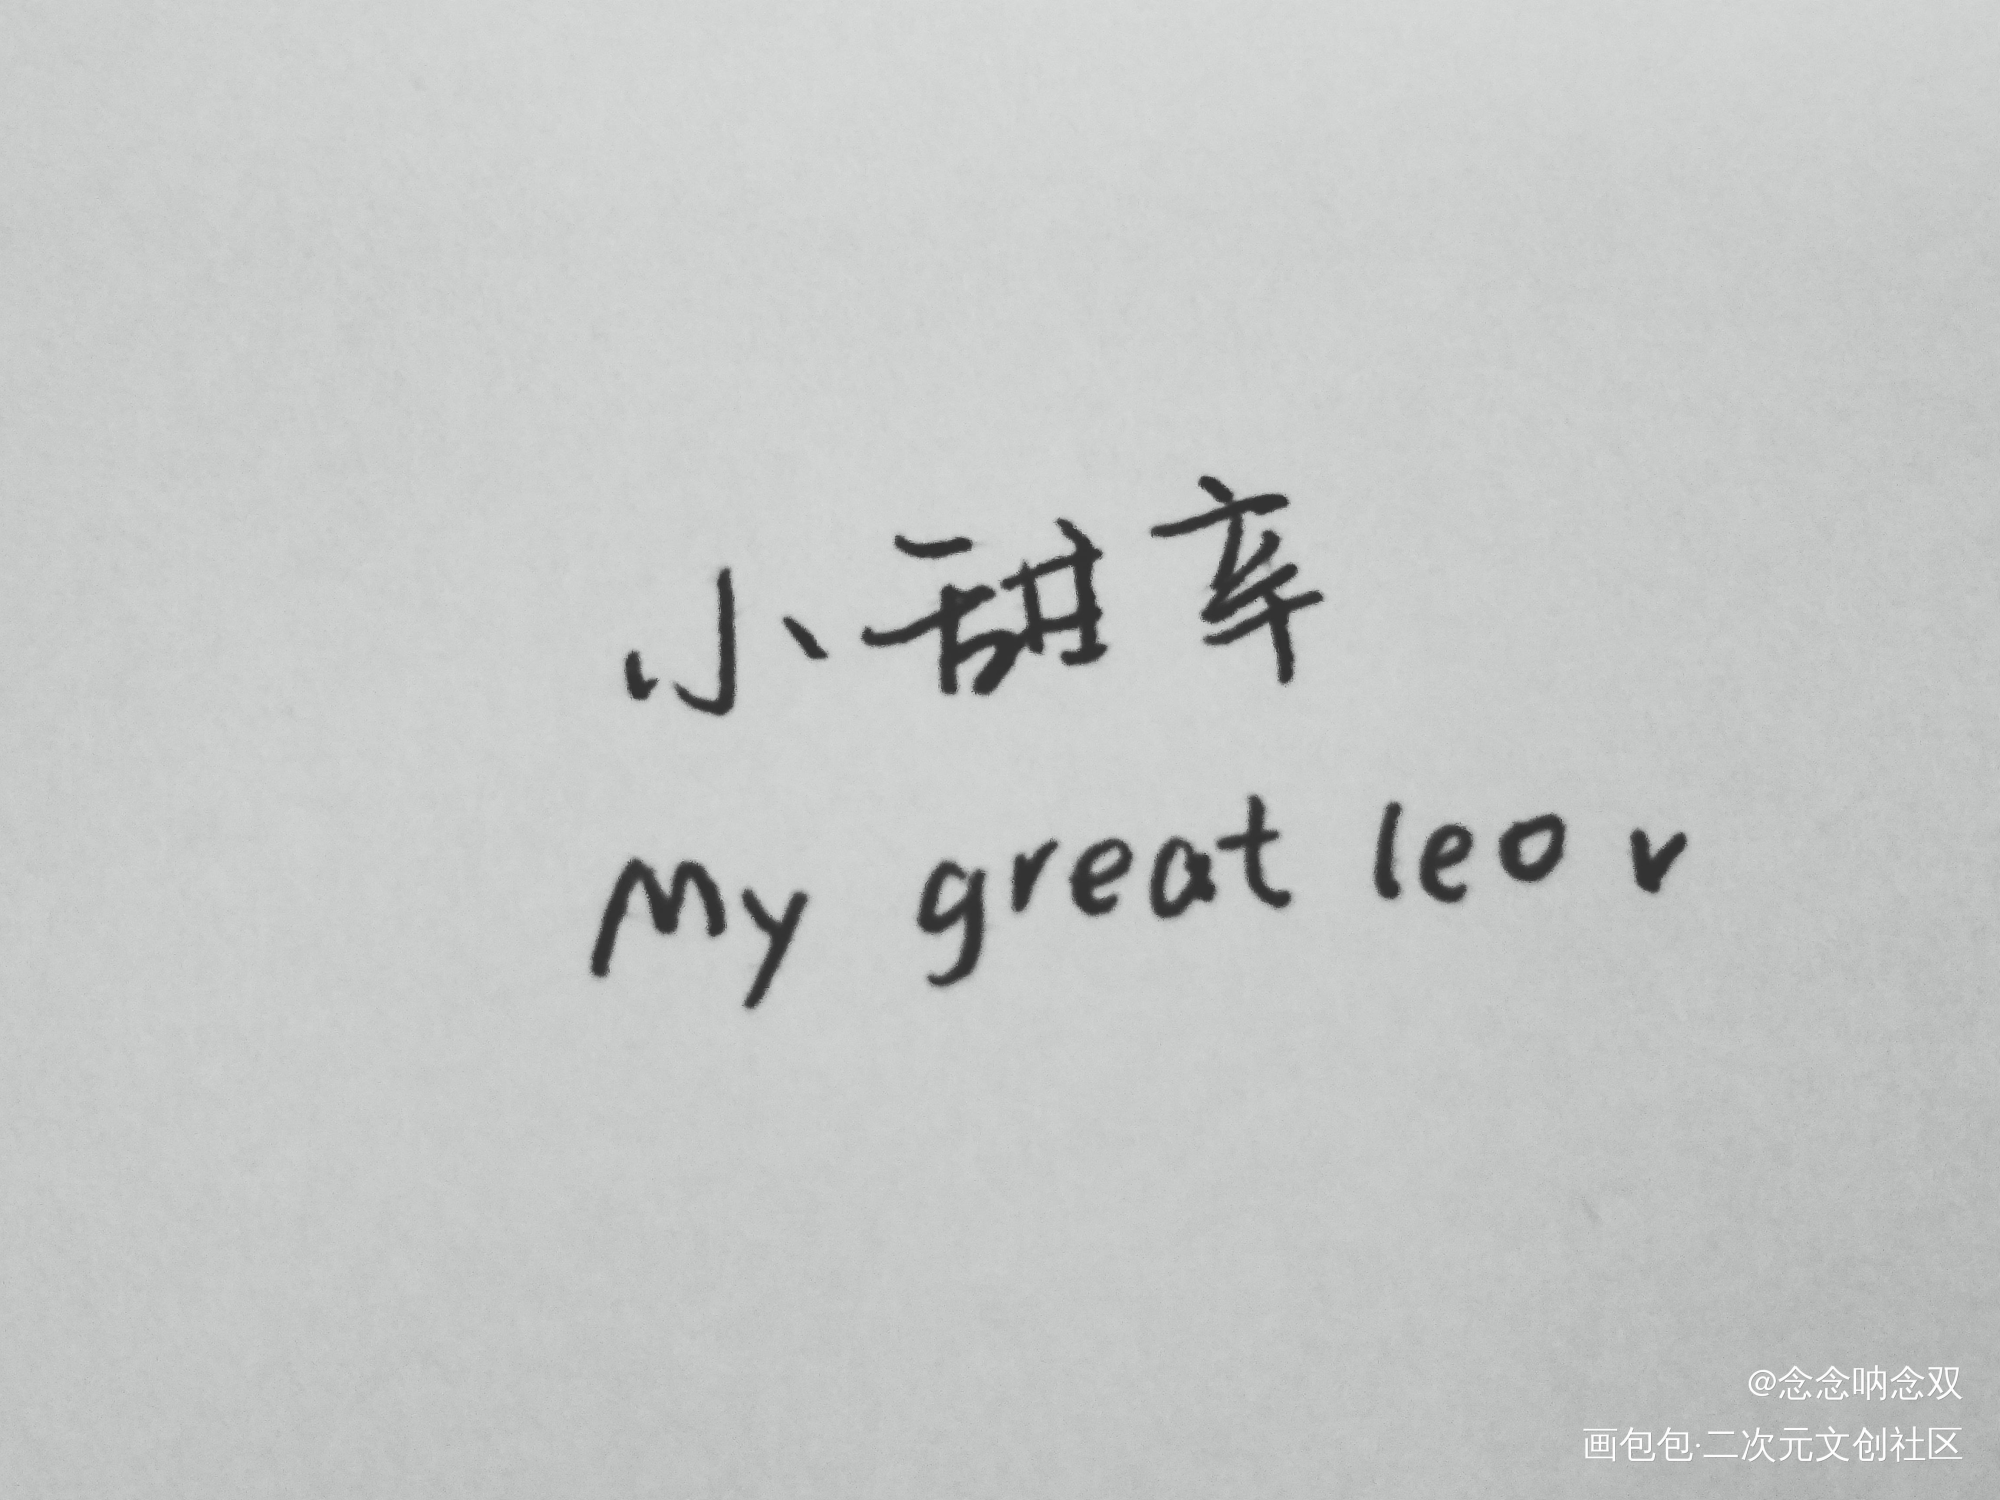 小甜辛
My great leo v
@念念呐念双
画包包·二次元文创社区